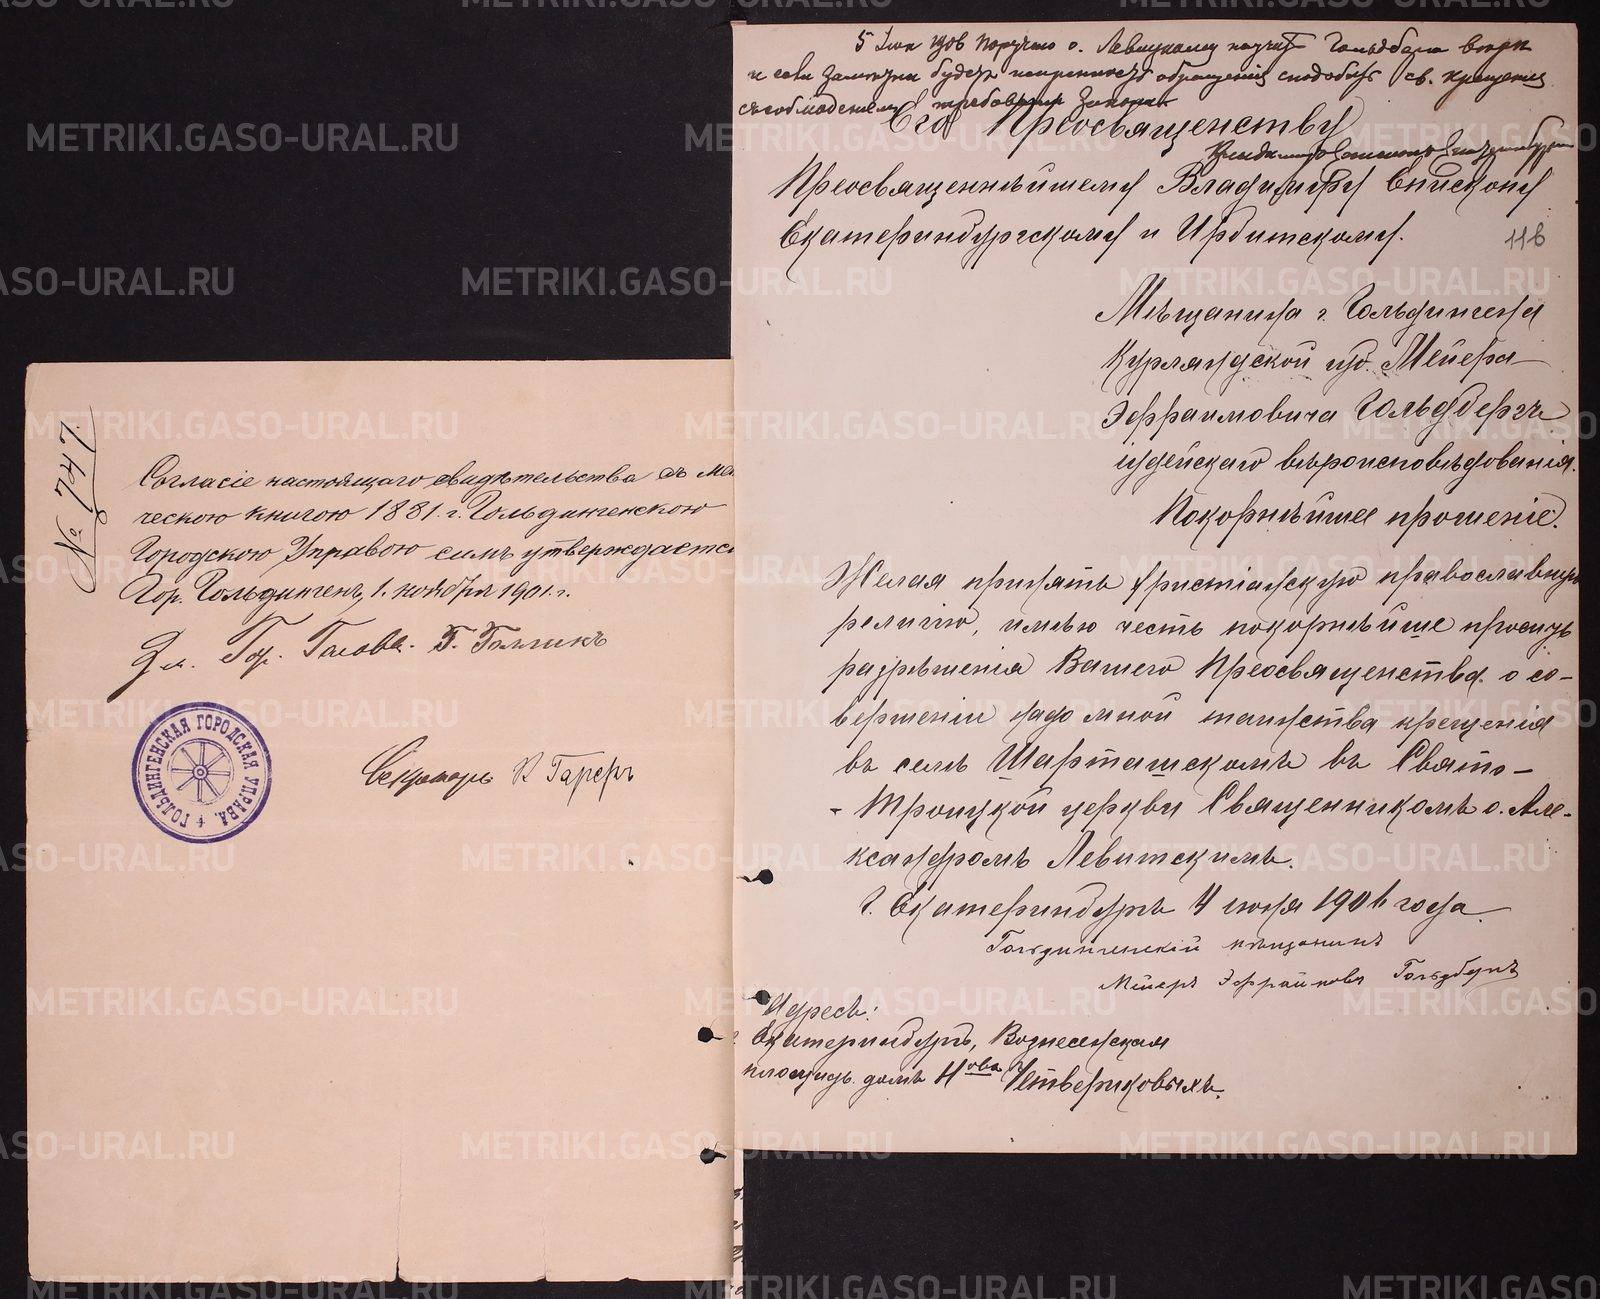 № 747.
Согласіе настоящаго свидѣтельства съ ме
ческою книгою 1881. г. Гольдингенскою
Городскою Управою симъ утверждается
Гор. Гольдингенъ, 1. ноября 1901. г.
Гор. Голова.
Секретарь
ГОЛЬДИНГЕНСКАЯ ГОРОДСКАЯ УПРАВА.
5 Іюня 1906 Поручаю о. Левицкому научить Гольдберга вѣры
и если замѣчена будетъ искренность обращенія сподобить св. крещенія
съ соблюденіемъ требованія закона
Его Преосвященству
Преосвященнѣйшему Владимиру Епископу
Екатеринбургскому и Ирбитскому.
116
Мѣщанина г. Гольдингена
Курляндской губ. Мейера
Эффраимовича Гольдбергъ
іудейскаго вѣроисповѣдованія.
Покорнѣйшее прошеніе.
Желая принять христіанскую православную
религію, имѣю честь покорнѣйше просить
разрѣшенія Вашего Преосвященства о со-
вершеніи надо мной таинства крещенія
въ селѣ Шарташскомъ въ Свято-
-Троицкой церкви Священникомъ о. Але-
ксандромъ Левитскимъ.
г. Екатеринбургъ 4 іюня 1906 года.
Гольдингенскій мѣщанинъ
Мейеръ Эффраимовъ Гольдбергъ
Адресъ:
Екатеринбургъ, Вознесенская
площадь. домъ Н-овъ Четвериковыхъ.
METRIKI.GASO-URAL.RU